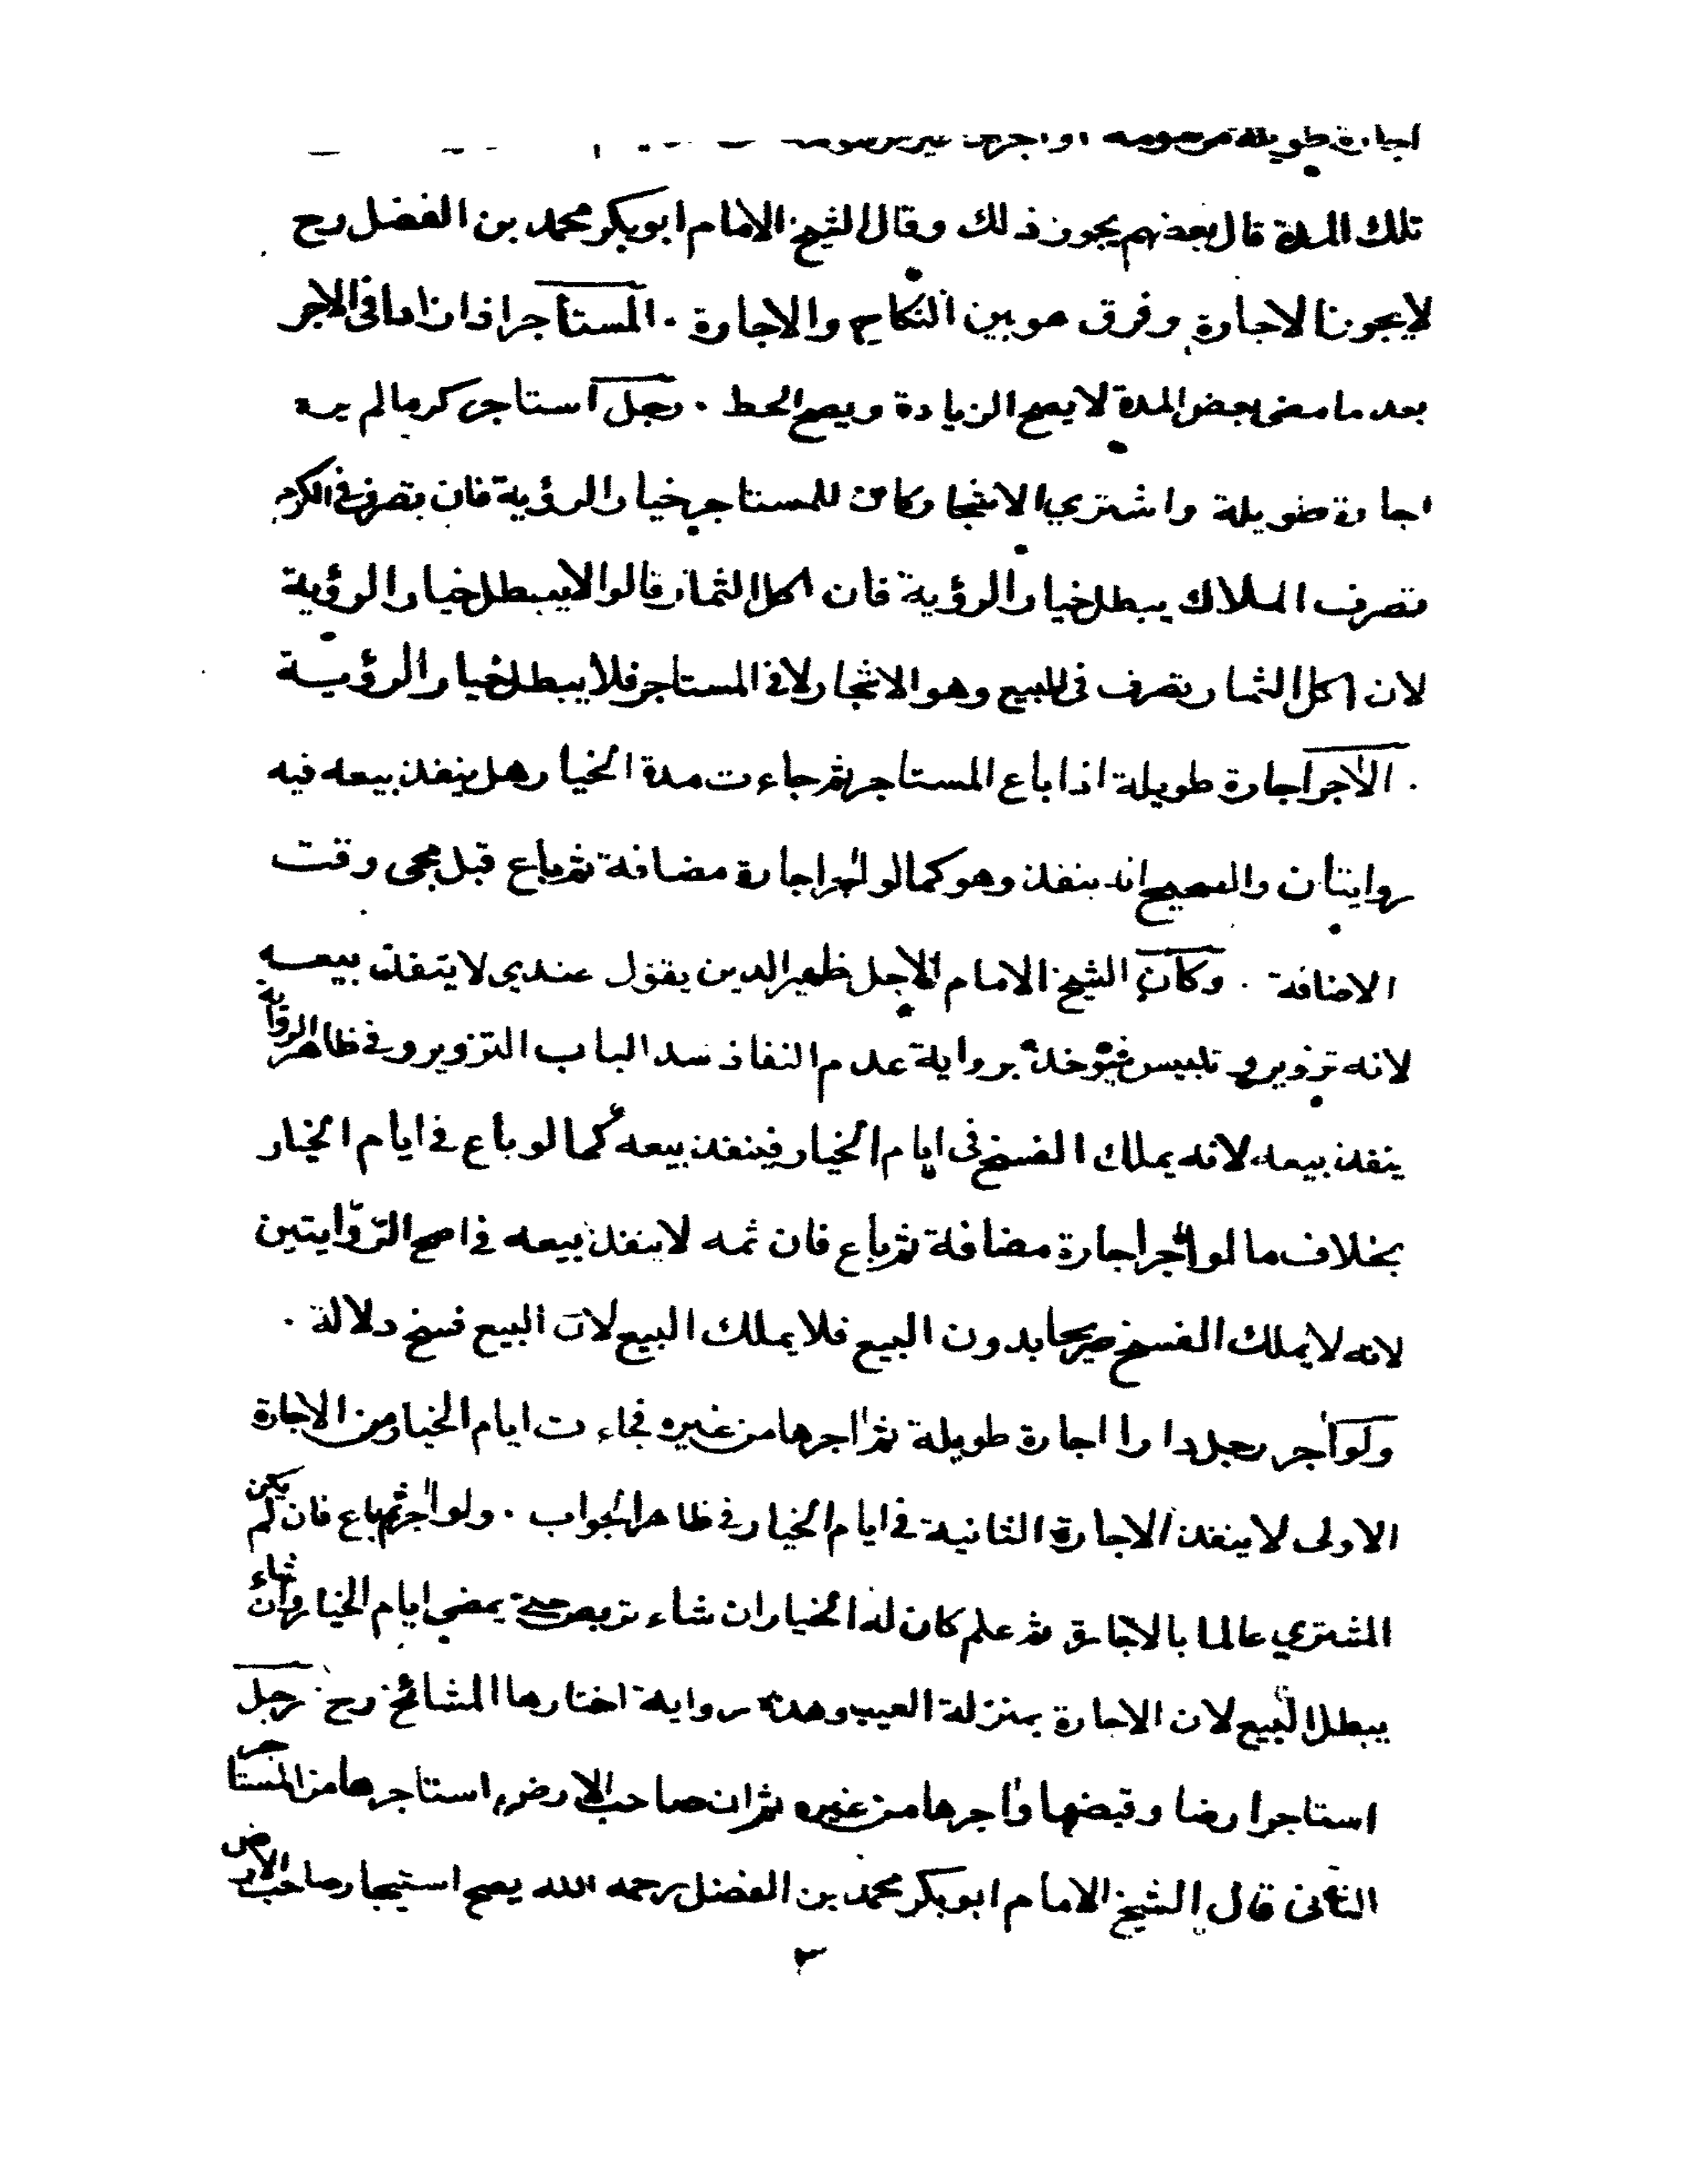 اجارة طويلة مرسومة او اجرة غير مرسومة
تلك المدة قال بعضهم يجوز ذلك وقال الشيخ الامام ابوبكر محمد بن الفضل رح
لا يجوز الاجارة وفرق هو بين النكاح والاجارة . المستأجر اذا زاد في الاجر
بعد ما مضى بعض المدة لا يصح الزيادة ويصح الحط . رجل استاجر كرما لم يره
اجارة طويلة واشتري الاشجار وكان للمستاجر خيار الرؤية فان تصرف في الكرم
تصرف الملاك يبطل خيار الرؤية فان اكل الثمار قالوا لا يبطل خيار الرؤية
لان اكل الثمار تصرف في المبيع وهو الاشجار لا في المستاجر فلا يبطل خيار الرؤية
. الآجر اجارة طويلة اذا باع المستاجر ثم جاءت مدة الخيار هل ينفذ بيعه فيه
روايتان والصحيح انه ينفذ وهو كما لو اجر اجارة مضافة ثم باع قبل مجئ وقت
الاضافة . وكان الشيخ الامام الاجل ظهير الدين يقول عندي لا ينفذ بيعه
لانه تزوير و تلبيس فيؤخذ برواية عدم النفاذ سد الباب التزوير وفي ظاهر الرواية
ينفذ بيعه لانه يملك الفسخ في ايام الخيار فينفذ بيعه كما لو باع في ايام الخيار
بخلاف ما لو اجر اجارة مضافة ثم باع فان ثمه لا ينفذ بيعه في اصح الروايتين
لانه لا يملك الفسخ صريحا بدون البيع فلا يملك البيع لان البيع فسخ دلالة .
ولو آجر رجل دارا اجارة طويلة ثم اجرها من غيره فجاءت ايام الخيار من الاجارة
الاولى لا ينفذ الاجارة الثانية في ايام الخيار في ظاهر الجواب . ولو اجر ثم باع فان لم يكن
المشتري عالما بالاجارة ثم علم كان له الخيار ان شاء تربص حتى يمضي ايام الخيار وان شاء
يبطل البيع لان الاجارة بمنزلة العيب وهذه رواية اختارها المشائخ رح . رجل
استاجر ارضا وقبضها واجرها من غيره ثم ان صاحب الارض استاجرها من المستاجر
الثاني قال الشيخ الامام ابوبكر محمد بن الفضل رحمه الله يصح استيجار صاحب الارض